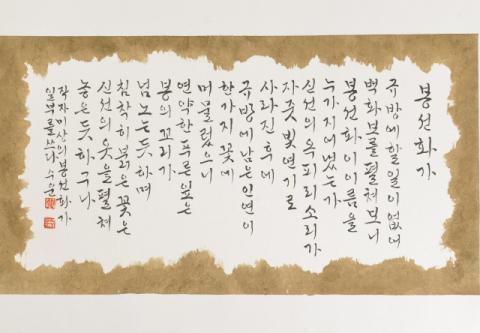 봉선화가
규방에 할 일이 없어
벽화보를 펼쳐보니
봉선화 이 이름을
누가 지어냈는가
신선의 옥피리 소리가
자줏빛 연기로
사라진 후에
규방에 남은 인연이
한가지 꽃에
머물렀으니
연약한 푸른 잎은
봉의 꼬리가
넘노는 듯하며
침착히 붉은 꽃은
신선의 옷을 펼쳐
놓은 듯하구나
작자미상의 봉선화가
일부를 쓰다 수운